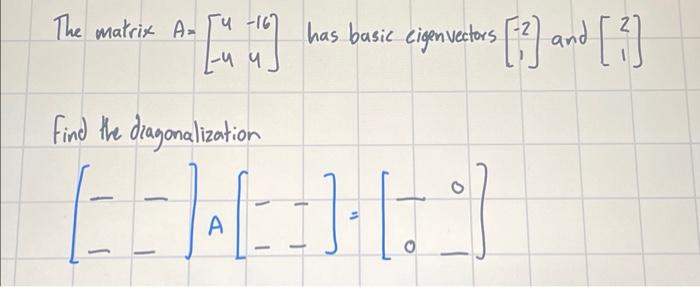 The matrix A= [4 -16] has basic eigenvectors [-2] and [2]
[-4 4] [1] [1]
Find the diagonalization
[_ _] [_ _] = [_ 0]
[_ _] A [_ _] [0 _]